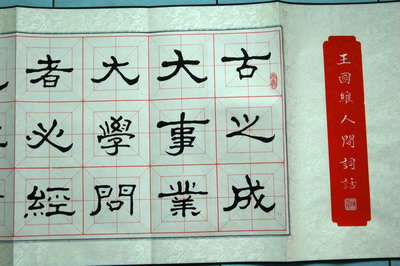 王國維人間詞話
古之成
大事業
大學問
者必經